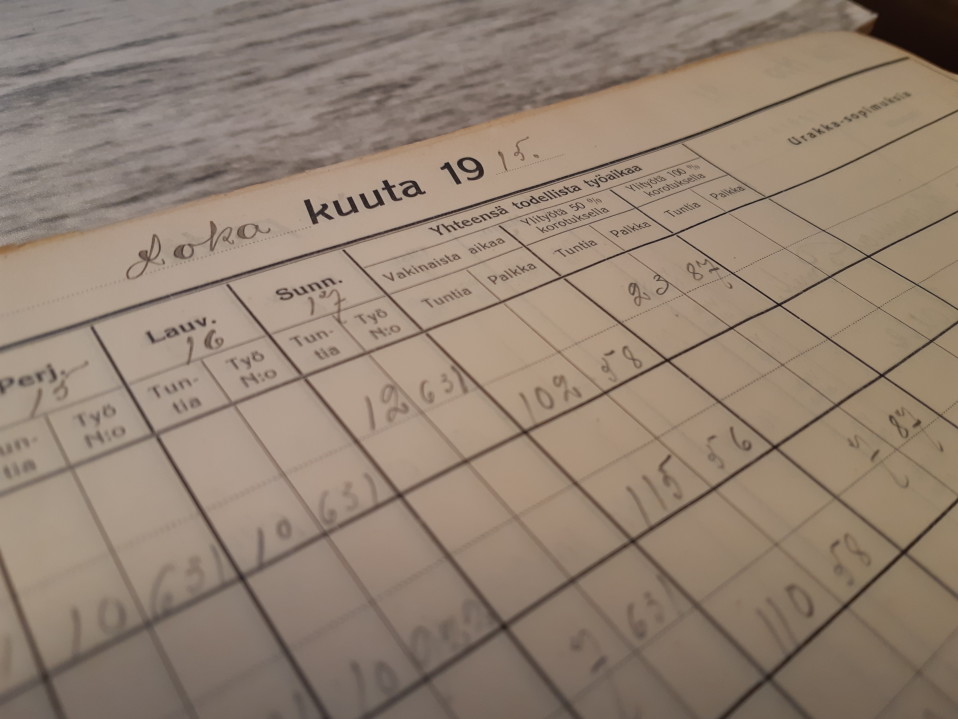 Loka kuuta 19 15.
Yhteensä todellista työaikaa Urakka-sopimuksia
Perj. 15 Lauv. 16 Sunn. 17 Vakinaista aikaa Ylityötä 50 % korotuksella Ylityötä 100 % korotuksella
Tun- Työ Tun- Työ Tuntia Palkka Tuntia Palkka Tuntia Palkka
tia N:o tia N:o tia N:o
12 631 102 58 23 87
10 631 10 631 115 56 87
10 2 631 110 58